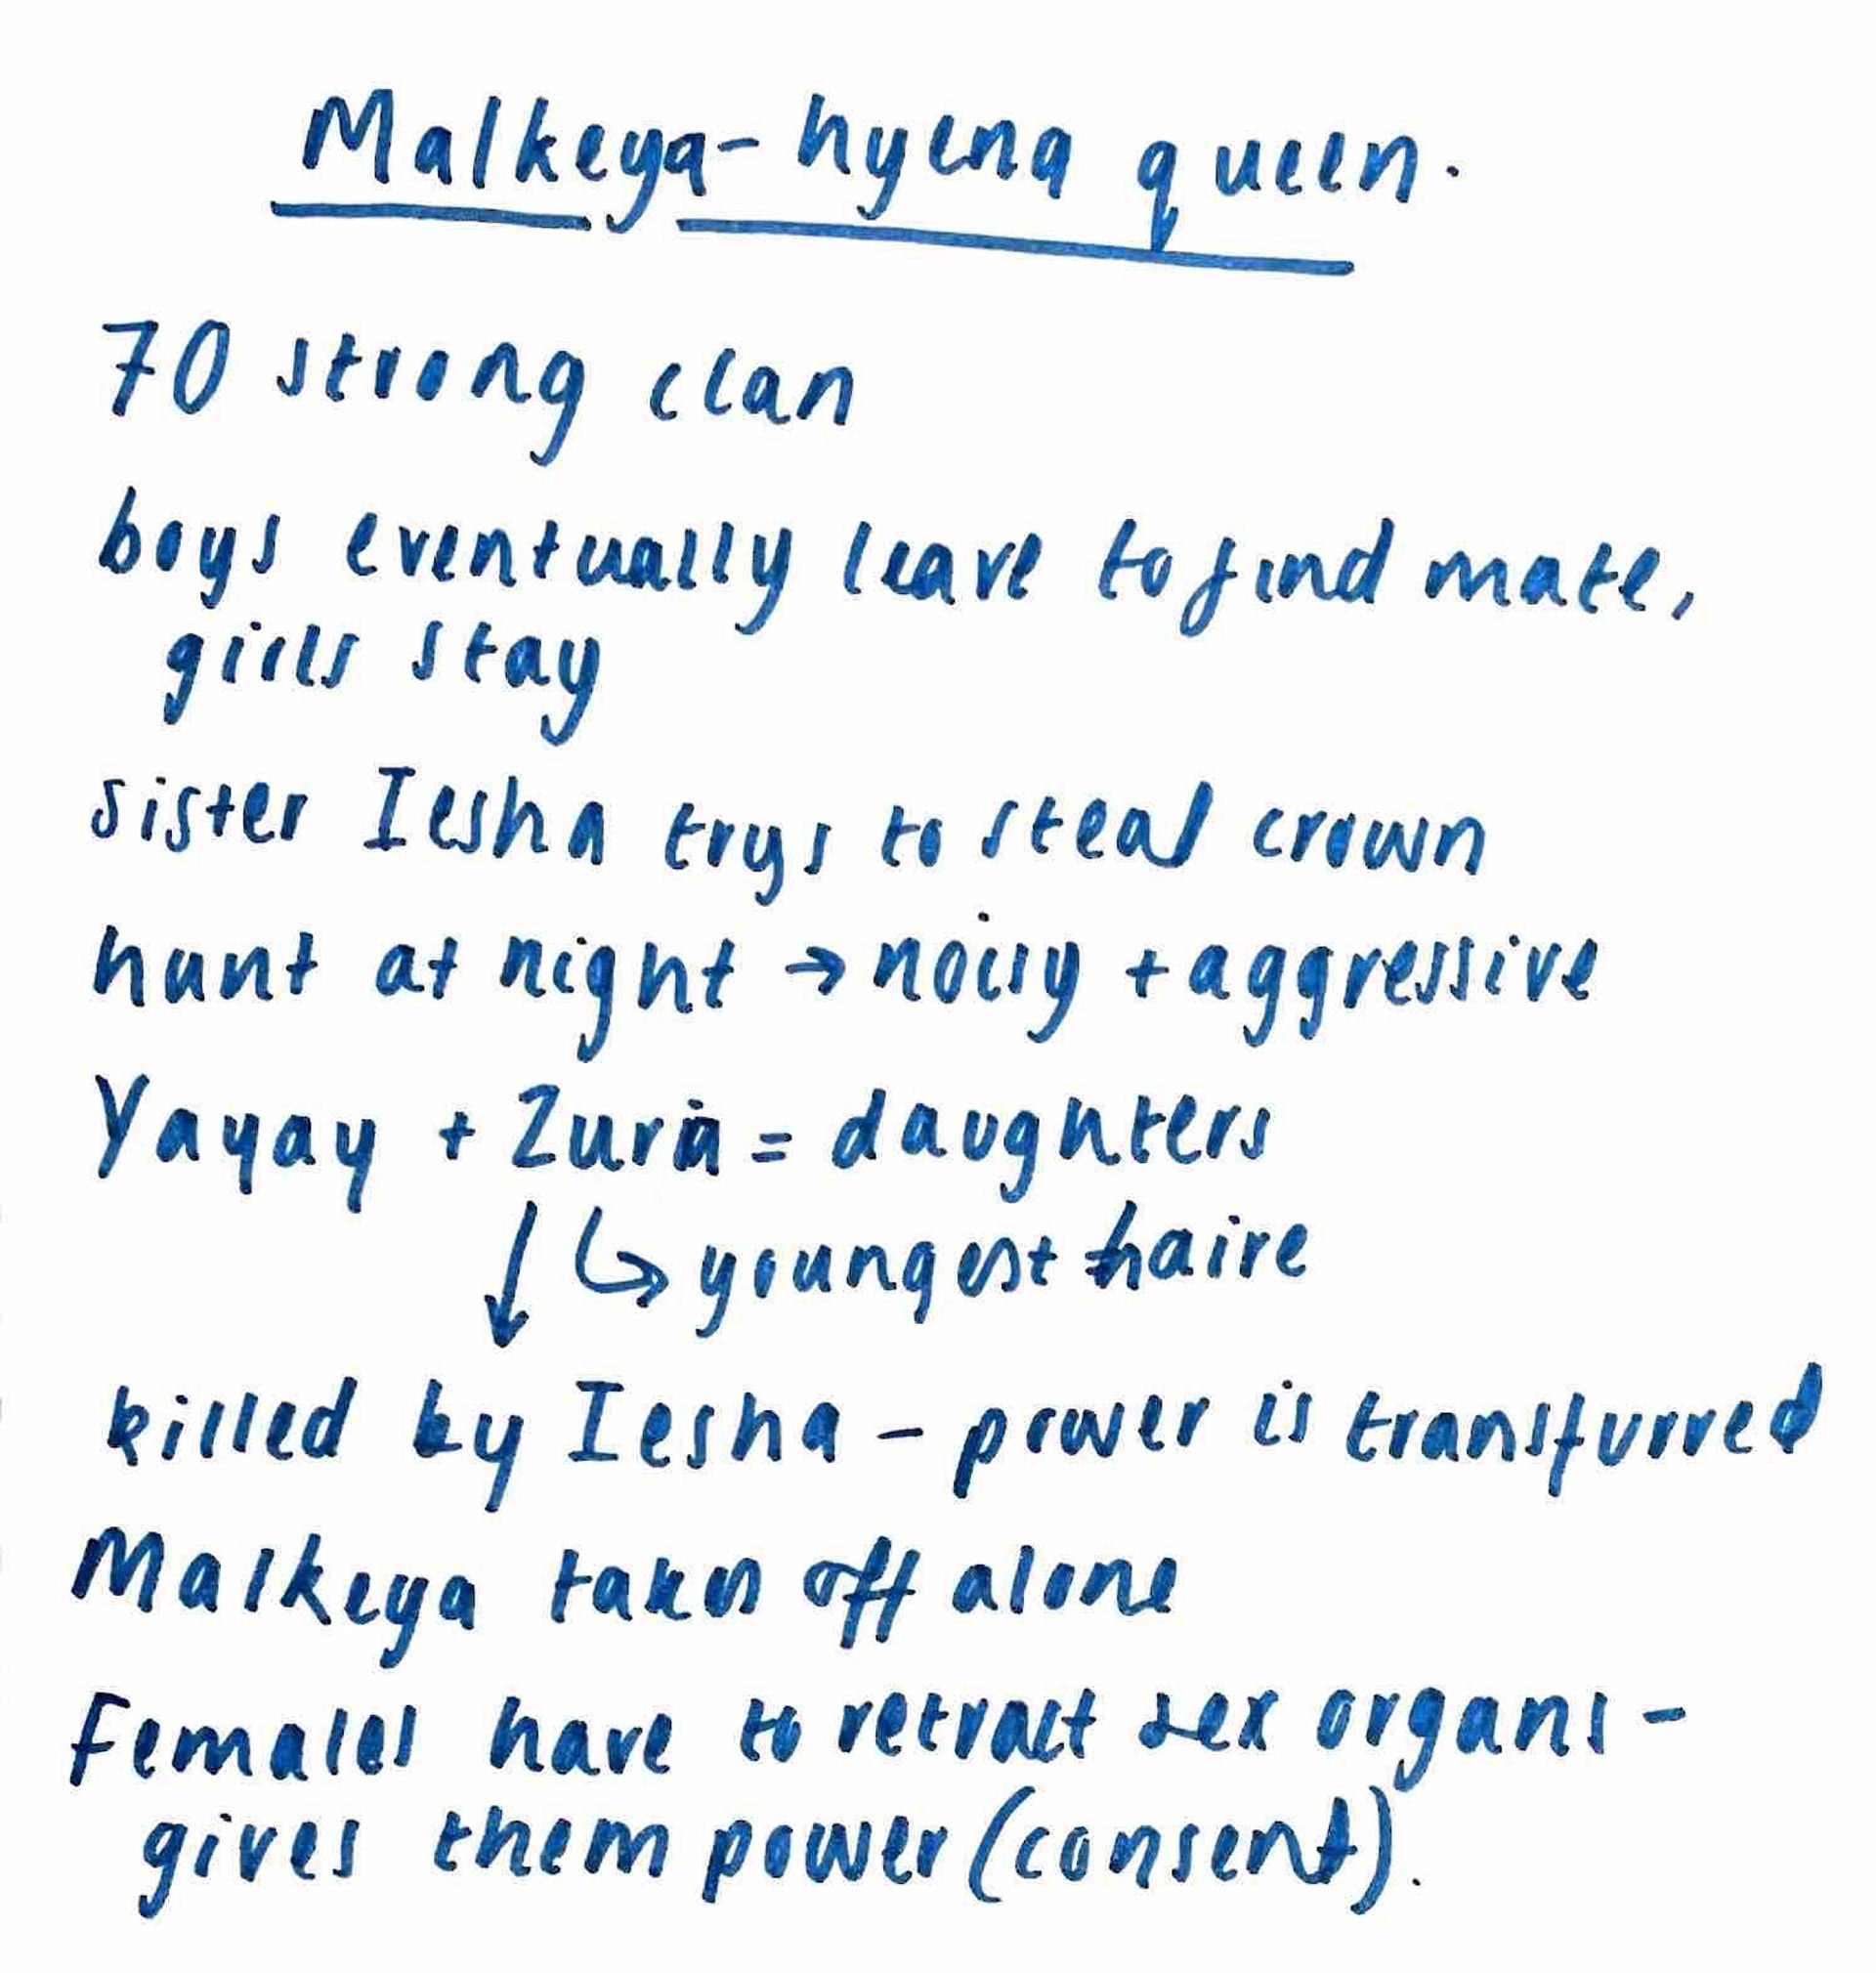 Malkeya - hyena queen.
70 strong clan
boys eventually leave to find mate,
girls stay
sister Iesha trys to steal crown
hunt at night → noisy + aggressive
Yayay + Zura = daughters
↓ ↳ youngest haire
killed by Iesha - power is transfurred
Malkeya takes off alone
Females have to retract sex organs -
gives them power (consent).